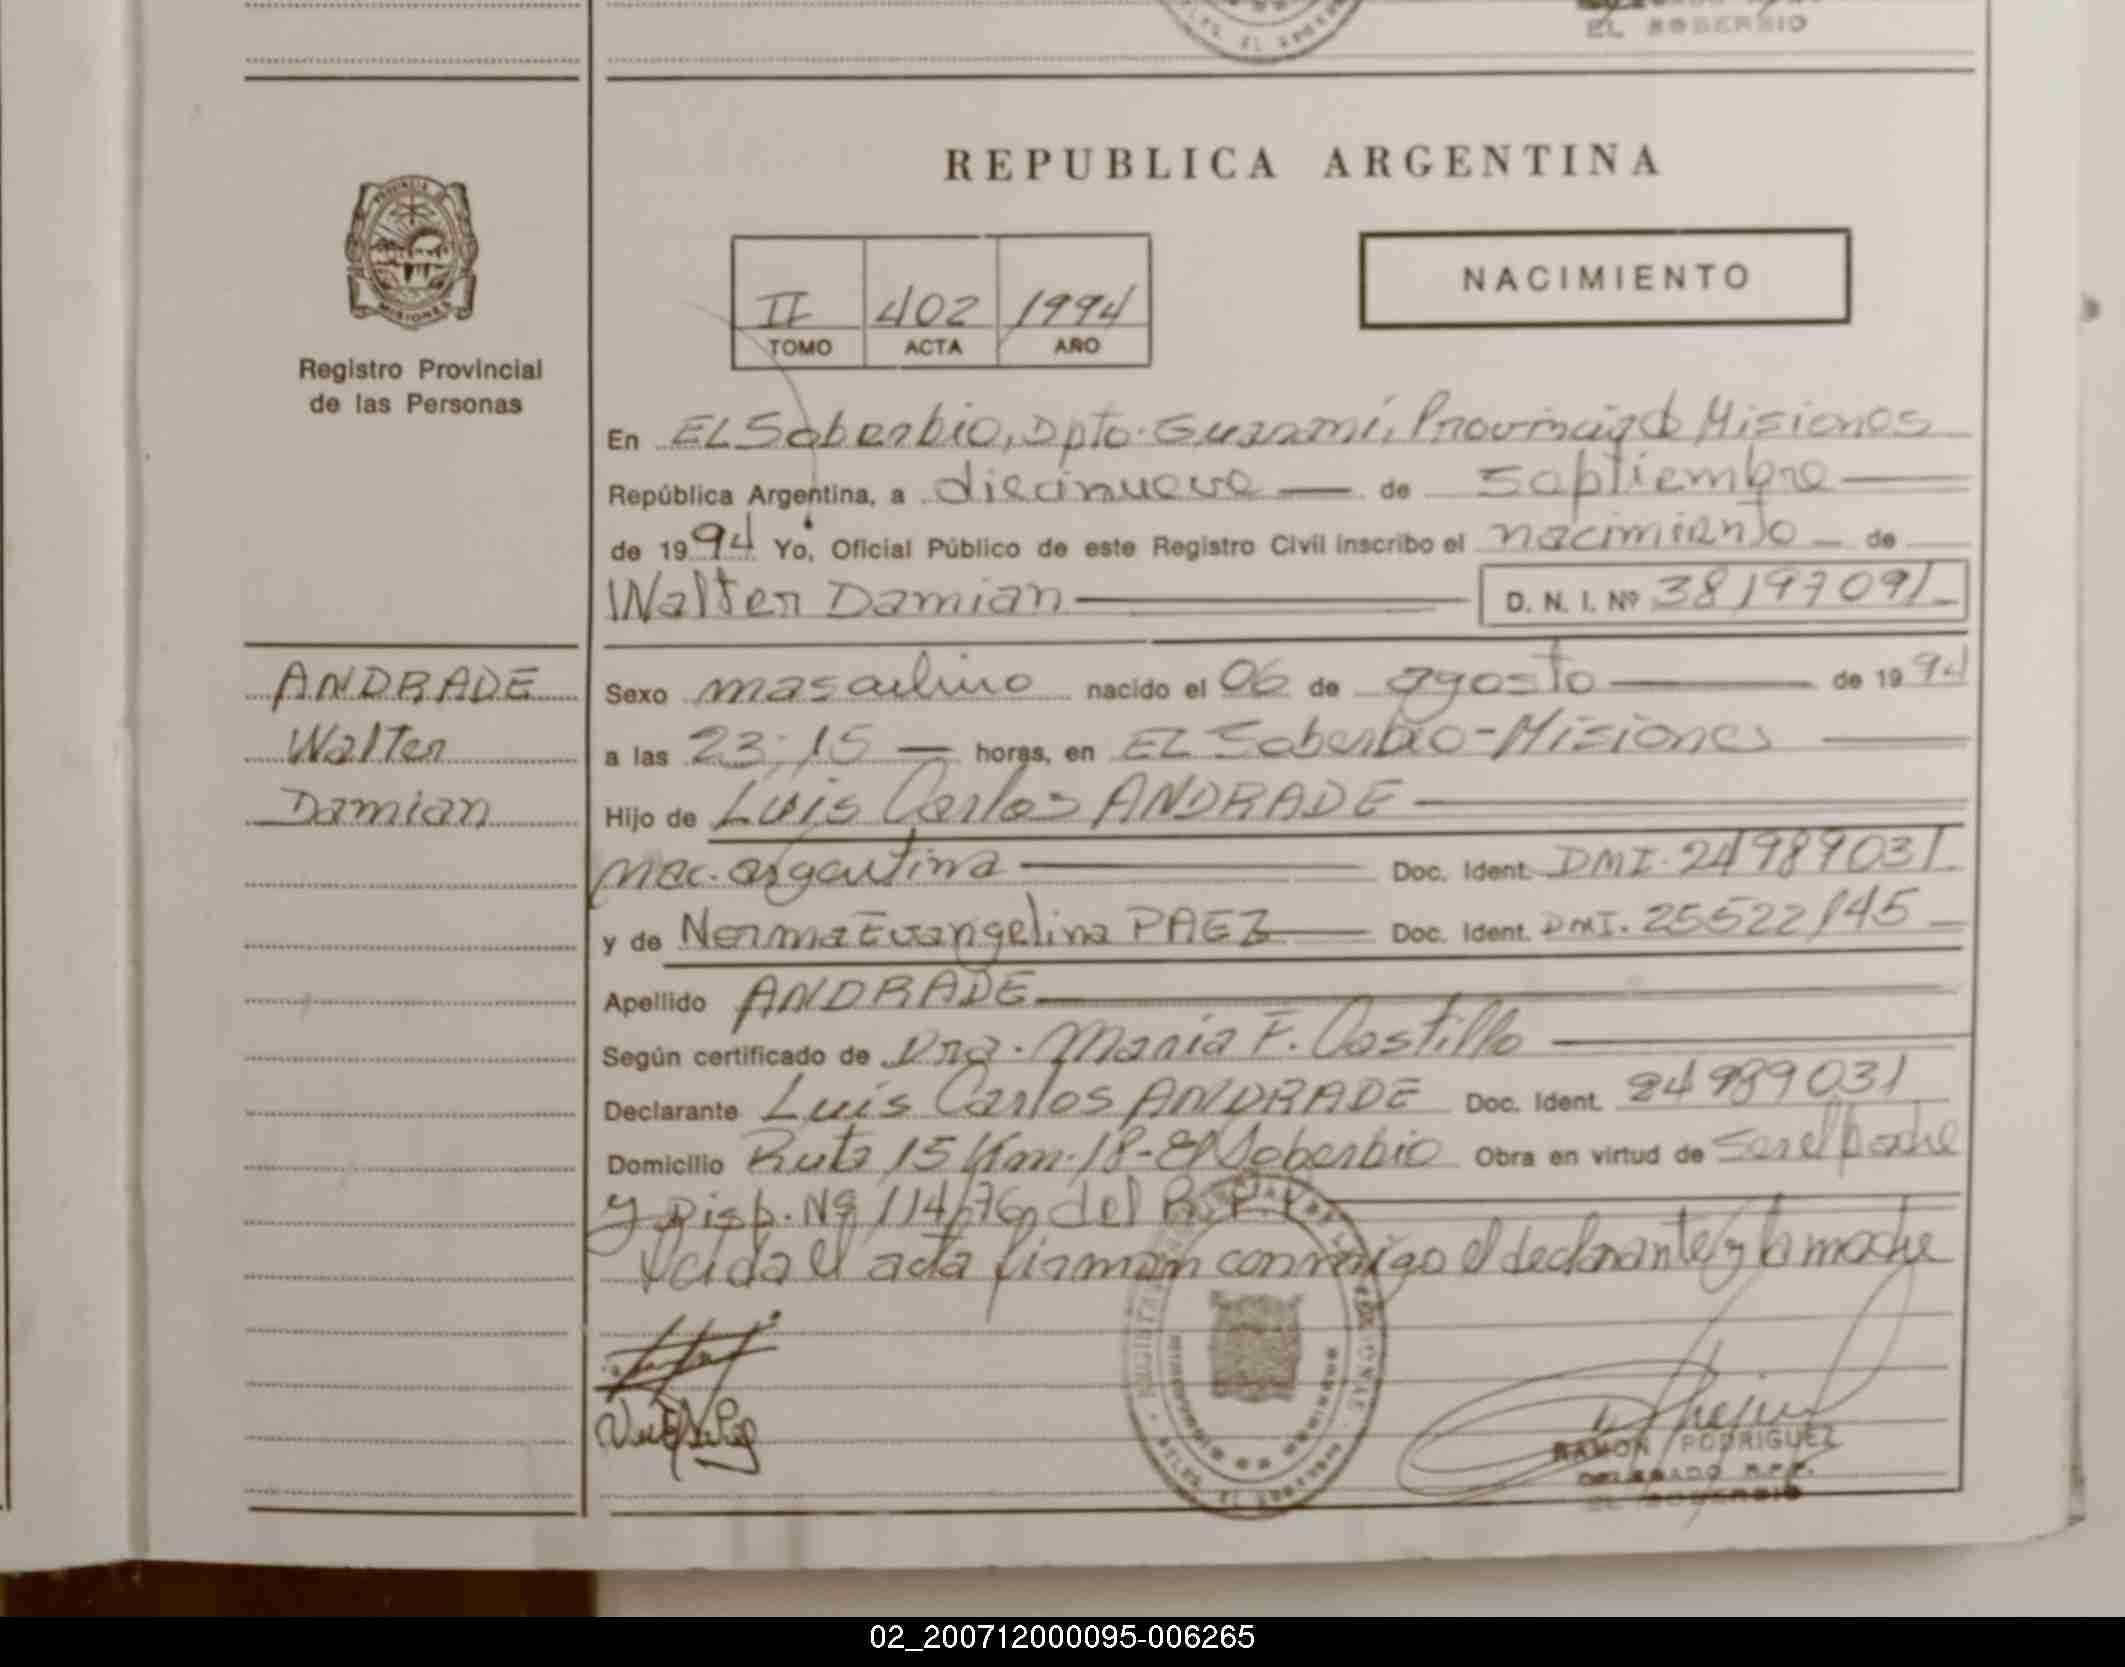 EL SOBERBIO
REPUBLICA ARGENTINA
PROVINCIA DE
MISIONES
Registro Provincial
de las Personas
II 402 1994
TOMO ACTA AÑO
NACIMIENTO
En EL Soberbio, Dpto. Guaraní, Provincia de Misiones
República Argentina, a diecinueve de septiembre
de 1994 Yo, Oficial Público de este Registro Civil inscribo el nacimiento de
Walter Damian D. N. I. Nº 38197091
ANDRADE
Walter
Damian
Sexo masculino nacido el 06 de agosto de 1994
a las 23:15 horas, en EL Soberbio-Misiones
Hijo de Luis Carlos ANDRADE
nac. argentina Doc. Ident. DNI. 24989031
y de Norma Evangelina PAEZ Doc. Ident. DNI. 25522145
Apellido ANDRADE
Según certificado de Dra. Maria F. Costillo
Declarante Luis Carlos ANDRADE Doc. Ident. 24989031
Domicilio Ruta 15 Km. 18-El Soberbio Obra en virtud de ser el padre
y Disp. Nº 114/76 del R.P.P.
Leida el acta firman conmigo el declarante y la madre
RAMON RODRIGUEZ
DELEGADO R.P.P.
EL SOBERBIO
02_200712000095-006265